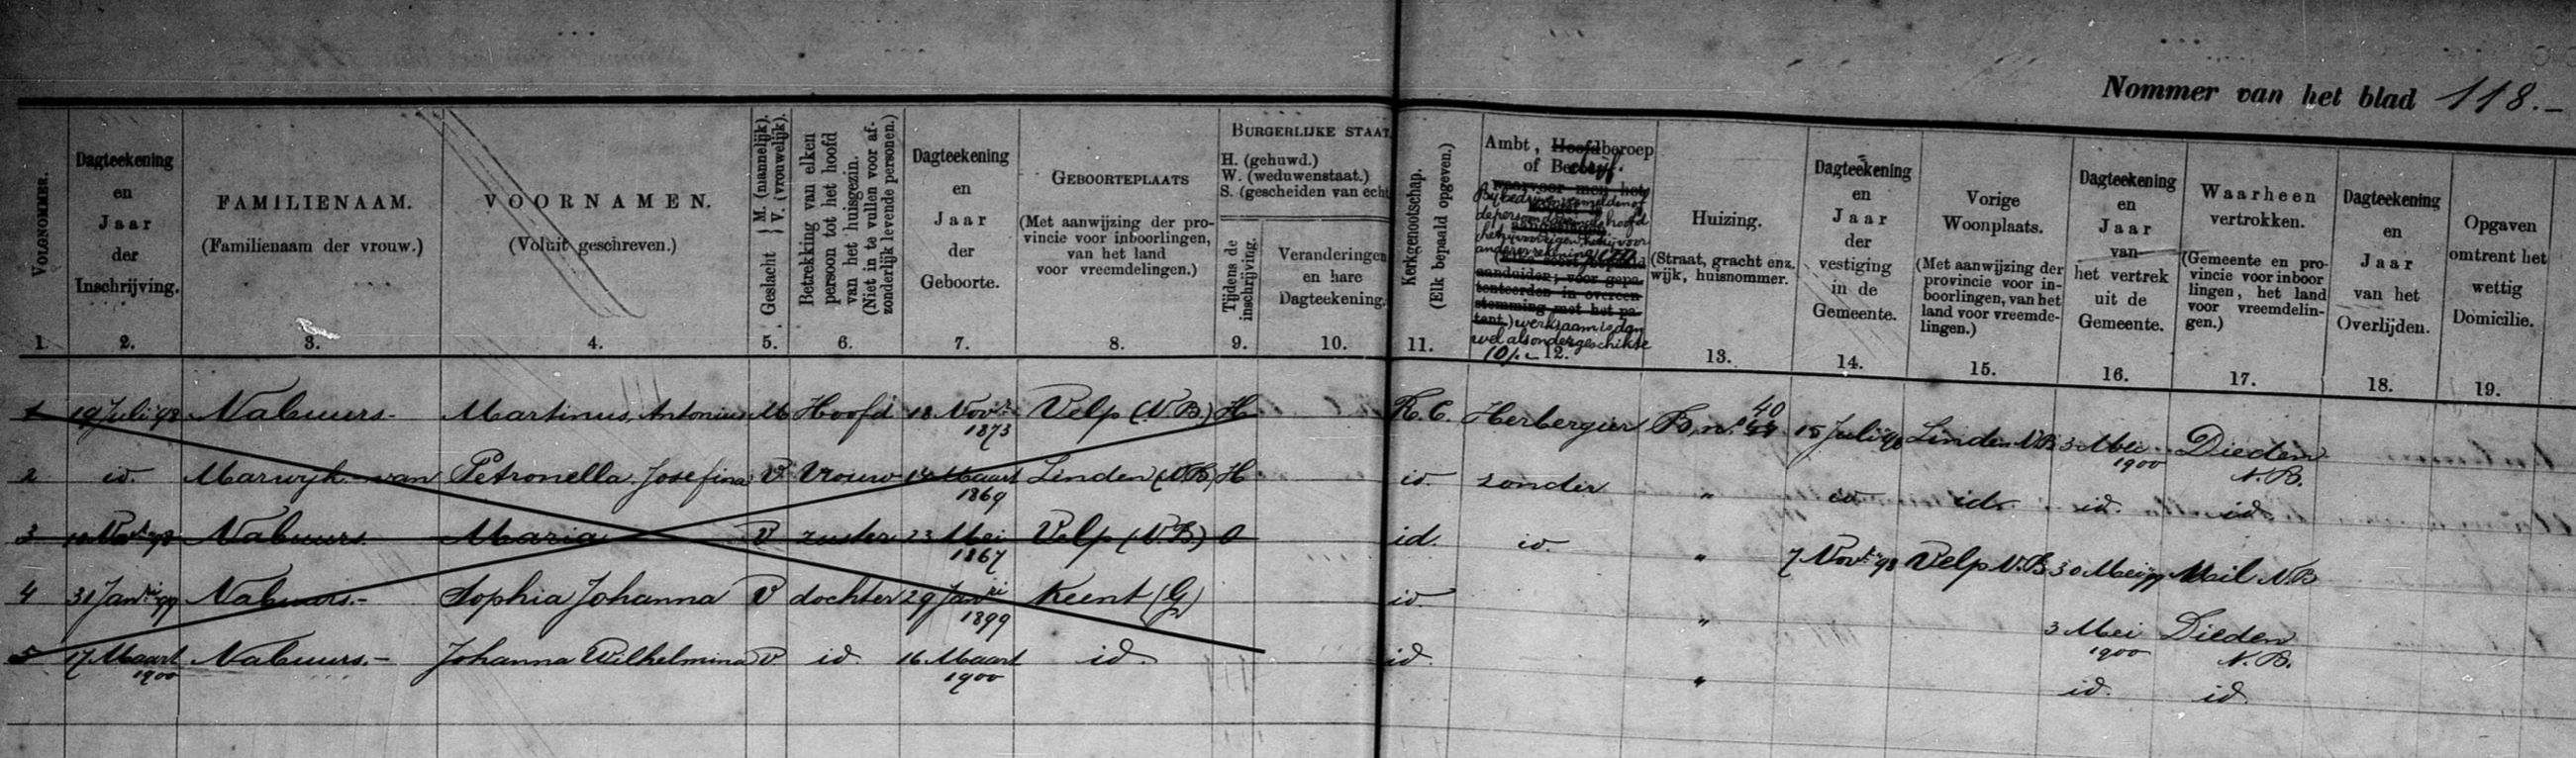 Nommer van het blad 118.-
VOLGNOMMER.
1.
Dagteekening
en
Jaar
der
Inschrijving.
2.
FAMILIENAAM.
(Familienaam der vrouw.)
3.
VOORNAMEN.
(Voluit geschreven.)
4.
Geslacht { M. (mannelijk). V. (vrouwelijk).
5.
Betrekking van elken
persoon tot het hoofd
van het huisgezin.
(Niet in te vullen voor af-
zonderlijk levende personen.)
6.
Dagteekening
en
Jaar
der
Geboorte.
7.
GEBOORTEPLAATS
(Met aanwijzing der pro-
vincie voor inboorlingen,
van het land
voor vreemdelingen.)
8.
BURGERLIJKE STAAT
H. (gehuwd.)
W. (weduwenstaat.)
S. (gescheiden van echt
Tijdens de
inschrijving.
9.
Veranderingen
en hare
Dagteekening.
10.
Kerkgenootschap.
(Elk bepaald opgeven.)
11.
Ambt, Hoofdberoep
of Bedrijf.
waarvoor men het
aanduiden; voor gepa-
tenteerden in overeen-
stemming met het pa-
tent.) werkzaam is dan
wel als ondergeschikte
12.
Huizing.
(Straat, gracht enz.
wijk, huisnommer.
13.
Dagteekening
en
Jaar
der
vestiging
in de
Gemeente.
14.
Vorige
Woonplaats.
(Met aanwijzing der
provincie voor in-
boorlingen, van het
land voor vreemde-
lingen.)
15.
Dagteekening
en
Jaar
van
het vertrek
uit de
Gemeente.
16.
Waarheen
vertrokken.
(Gemeente en pro-
vincie voor inboor
lingen, het land
voor vreemdelin-
gen.)
17.
Dagteekening
en
Jaar
van het
Overlijden.
18.
Opgaven
omtrent het
wettig
Domicilie.
19.
1 19 Juli 98 Nabuurs.- Martinus, Antonius M Hoofd 18 Novr. 1873 Velp (N.B.) H R.C. Herbergier B, no. 40 15 Juli 98 Linden N.B. 3 Mei 1900 Dieden N.B.
2 id. Marwijk van Petronella Josefina V Vrouw Maart 1869 Linden (N.B.) H id. zonder " id. id. id. id.
3 Novr. 98 Nabuurs. Maria V zuster 23 Mei 1867 Velp (N.B.) O id. id. " 7 Novr. 98 Velp N.B. 30 Mei 99 Mill N.B.
4 31 Janri 99 Nabuurs.- Sophia Johanna V dochter 29 Janri 1899 Keent (G) id. " 3 Mei 1900 Dieden N.B.
5 17 Maart 1900 Nabuurs.- Johanna Wilhelmina V id. 16 Maart 1900 id. id. " id. id.